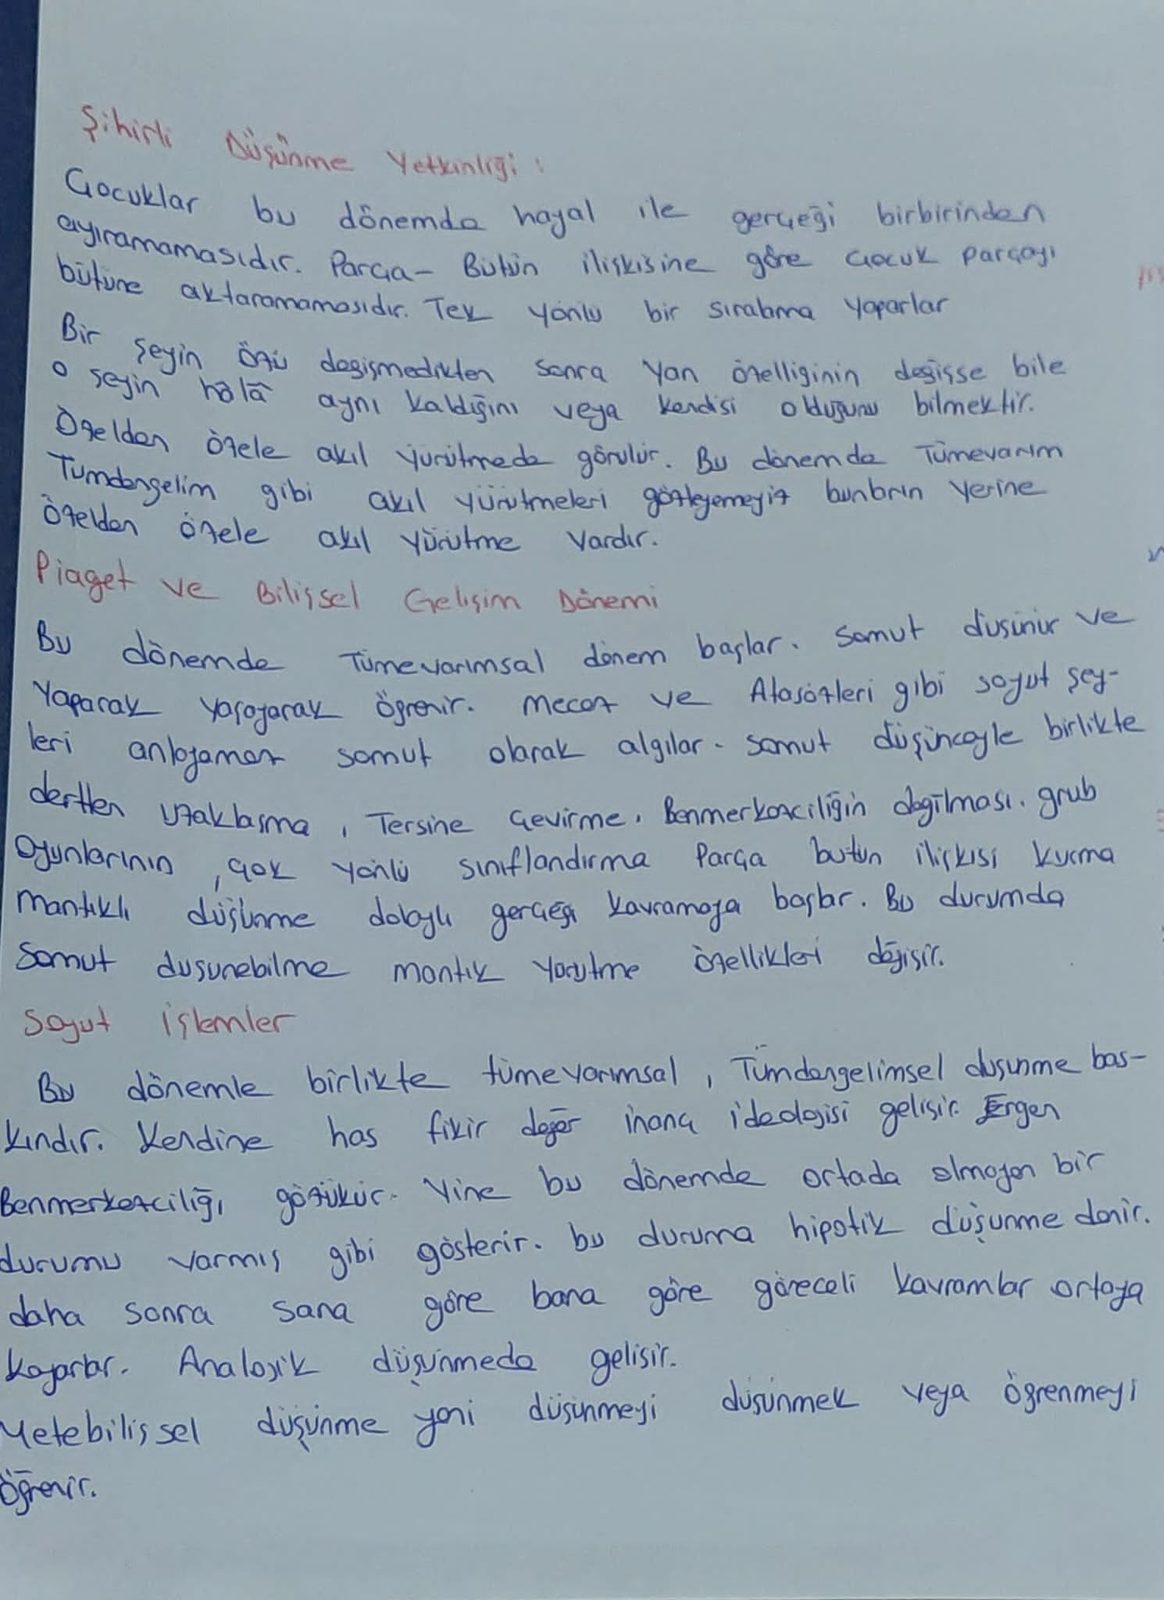 Şihirli Düşünme Yetkinliği :
Çocuklar bu dönemde hayal ile gerçeği birbirinden
ayıramamasıdır. Parça - Bütün ilişkisine göre Çocuk parçayı
bütüne aktaramamasıdır. Tek yönlü bir sıralama yaparlar
Bir şeyin özü degişmedikten sonra yan özelliginin değişse bile
o seyin hâlâ aynı kaldığını veya kendisi olduğunu bilmektir.
Özelden özele akıl yürütmede görülür. Bu dönemde Tümevarım
Tumdengelim gibi akıl yürütmeleri gözleyemeyiz bunların yerine
Özelden özele akıl yürütme vardır.
Piaget ve Bilişsel Gelişim Dönemi
Bu dönemde Tümevarımsal dönem başlar. Somut düsünür ve
Yaparak yaşayarak öğrenir. Mecaz ve Atasözleri gibi soyut şey-
leri anlayamaz somut olarak algılar. somut düşünceyle birlikte
uzaklasma , Tersine çevirme, Benmerkezciliğin dağılması. grub
Oyunlarının , çok yönlü sınıflandırma Parça butun ilişkisi kurma
mantıklı düşünme gerçeği kavramaya başlar. Bu durumda
Somut dusunebilme mantık yürütme özellikleri değişir.
Soyut işlemler
Bu dönemle birlikte tümevarımsal , Tümdengelimsel duşunme bas-
kındır. Kendine has fikir değer inanç ideolojisi gelişir. Ergen
Benmerkezciliği gözükür. Yine bu dönemde ortada olmayan bir
durumu varmış gibi gösterir. bu duruma hipotik düşunme denir.
daha sonra sana göre bana göre göreceli kavramlar ortaya
koyarlar. Analojik düşünmede gelisir.
Metebilişsel düşünme yani düşünmeyi düşünmek veya öğrenmeyi
öğrenir.